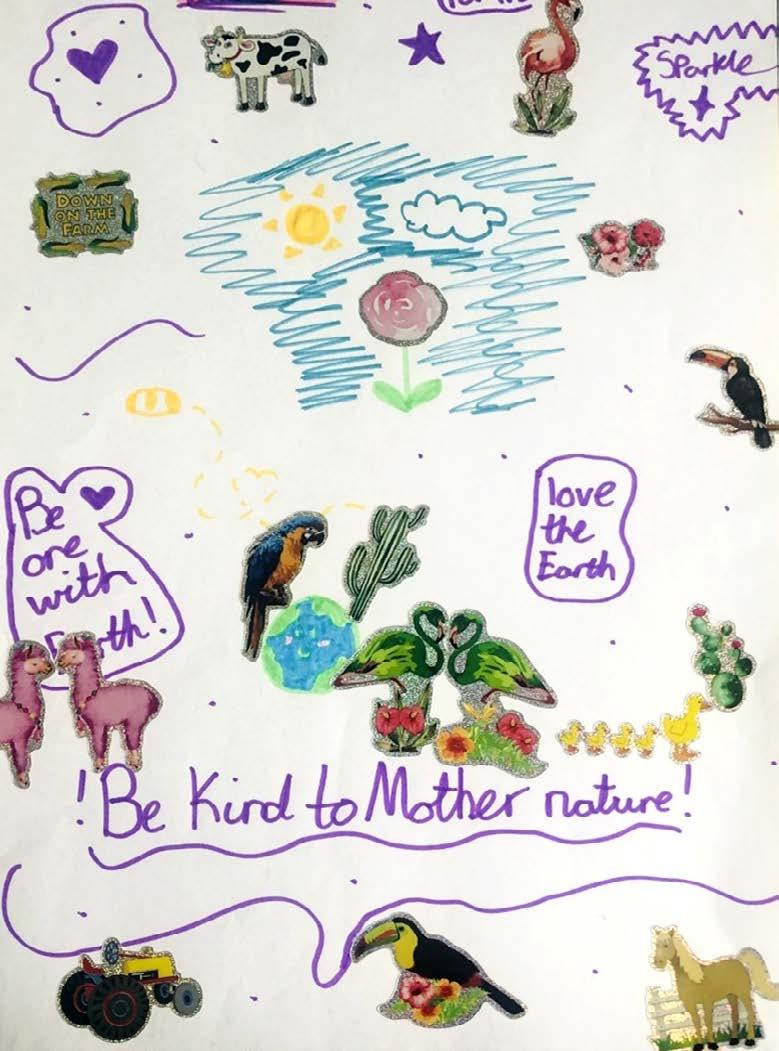 Sparkle
DOWN
ON THE
FARM
Be
one
with
Earth!
love
the
Earth
!Be Kind to Mother nature!